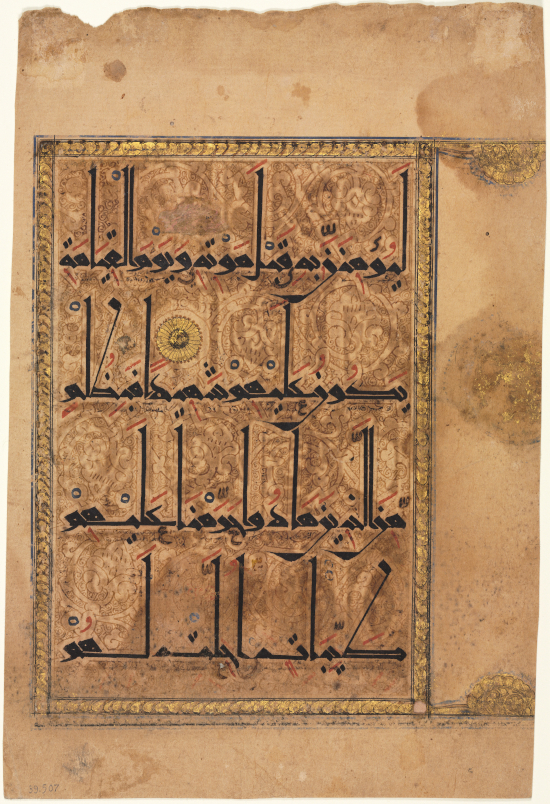 ليؤمنن به قبل موته ويوم القيامة
يكون عليهم شهيدا فبظلم
من الذين هادوا حرمنا عليهم
طيبات احلت لهم
39.507